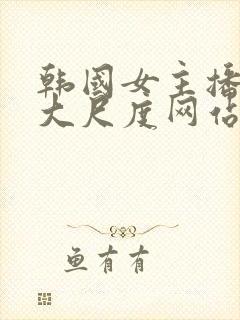 韩国女主播
大尺度网占
鱼有有